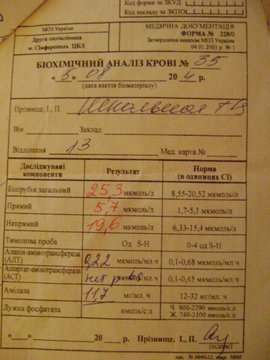 МОЗ України
Друга поліклініка
м. Сімферополь ЦБЛ
Код форми за ЗКУД
Код закладу за ЗКПО
МЕДИЧНА ДОКУМЕНТАЦІЯ
ФОРМА № 228/0
Затверджена наказом МОЗ України
04.01.2001 р. № 1
БІОХІМІЧНИЙ АНАЛІЗ КРОВІ № 35
"5" 08 20 р.
(дата взяття біоматеріалу)
Прізвище, І., П.
Вік Заклад
Відділення 13 Мед. карта №
Досліджувані компоненти Результат Норма (в одиницях СІ)
Білірубін загальний 25,3 мкмоль/л 8,55-20,52 мкмоль/л
Прямий 5,7 мкмоль/л 1,7-5,1 мкмоль/л
Непрямий 19,6 мкмоль/л 6,33-15,4 мкмоль/л
Тимолова проба Од S-H 0-4 од S-H
Аланін-амінотрансфераза (АЛТ) 0,22 мкмоль/мл.ч 0,1-0,68 мкмоль/мл.ч
Аспартат-амінотрансфераза (АСТ) нет мкмоль/мл.ч 0,1-0,45 мкмоль/мл.ч
Амілаза 11,7 мг/мл. ч 12-32 мг/мл. ч
Лужна фосфатаза нмоль/с.л Ч. 900-2290 нмоль/с.л
Ж. 740-2100 нмоль/с.л
" " 20 р. Прізвище, І., П.
(підпис)